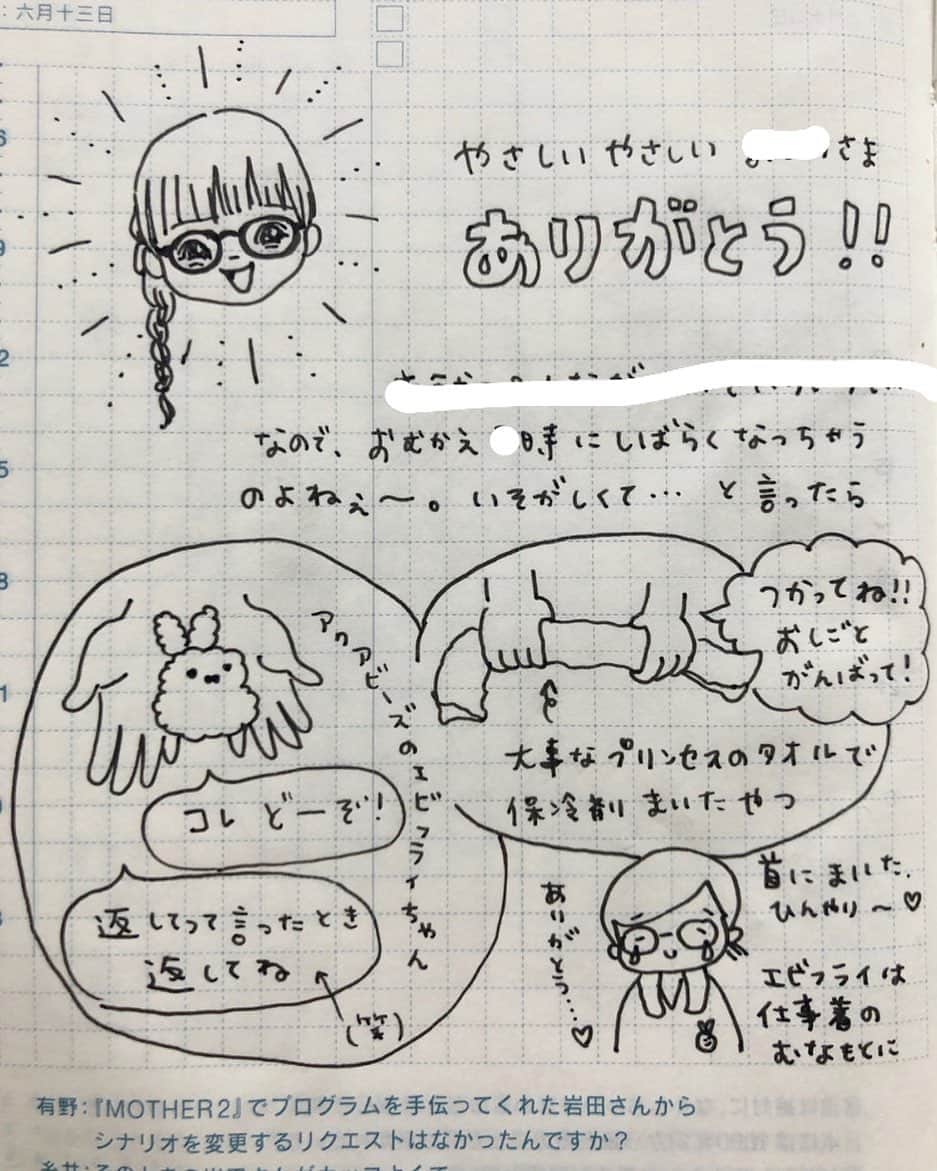 : 六月十三日
やさしい やさしい さま
ありがとう!!
なので、おむかえ 時にしばらくなっちゃう
のよねぇ〜。いそがしくて… と言ったら
アクアビーズのエビフライちゃん
コレ どーぞ!
返してって言ったとき
返してね
(笑)
つかってね!!
おしごと
がんばって!
大事なプリンセスのタオルで
保冷剤まいたやつ
ありがとう…♡
首にまいた。
ひんやり〜♡
エビフライは
仕事着の
むなもとに
有野:『MOTHER2』でプログラムを手伝ってくれた岩田さんから
シナリオを変更するリクエストはなかったんですか?